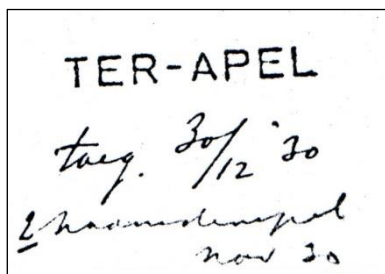 TER-APEL
toeg. 30/12 '30
nov 30